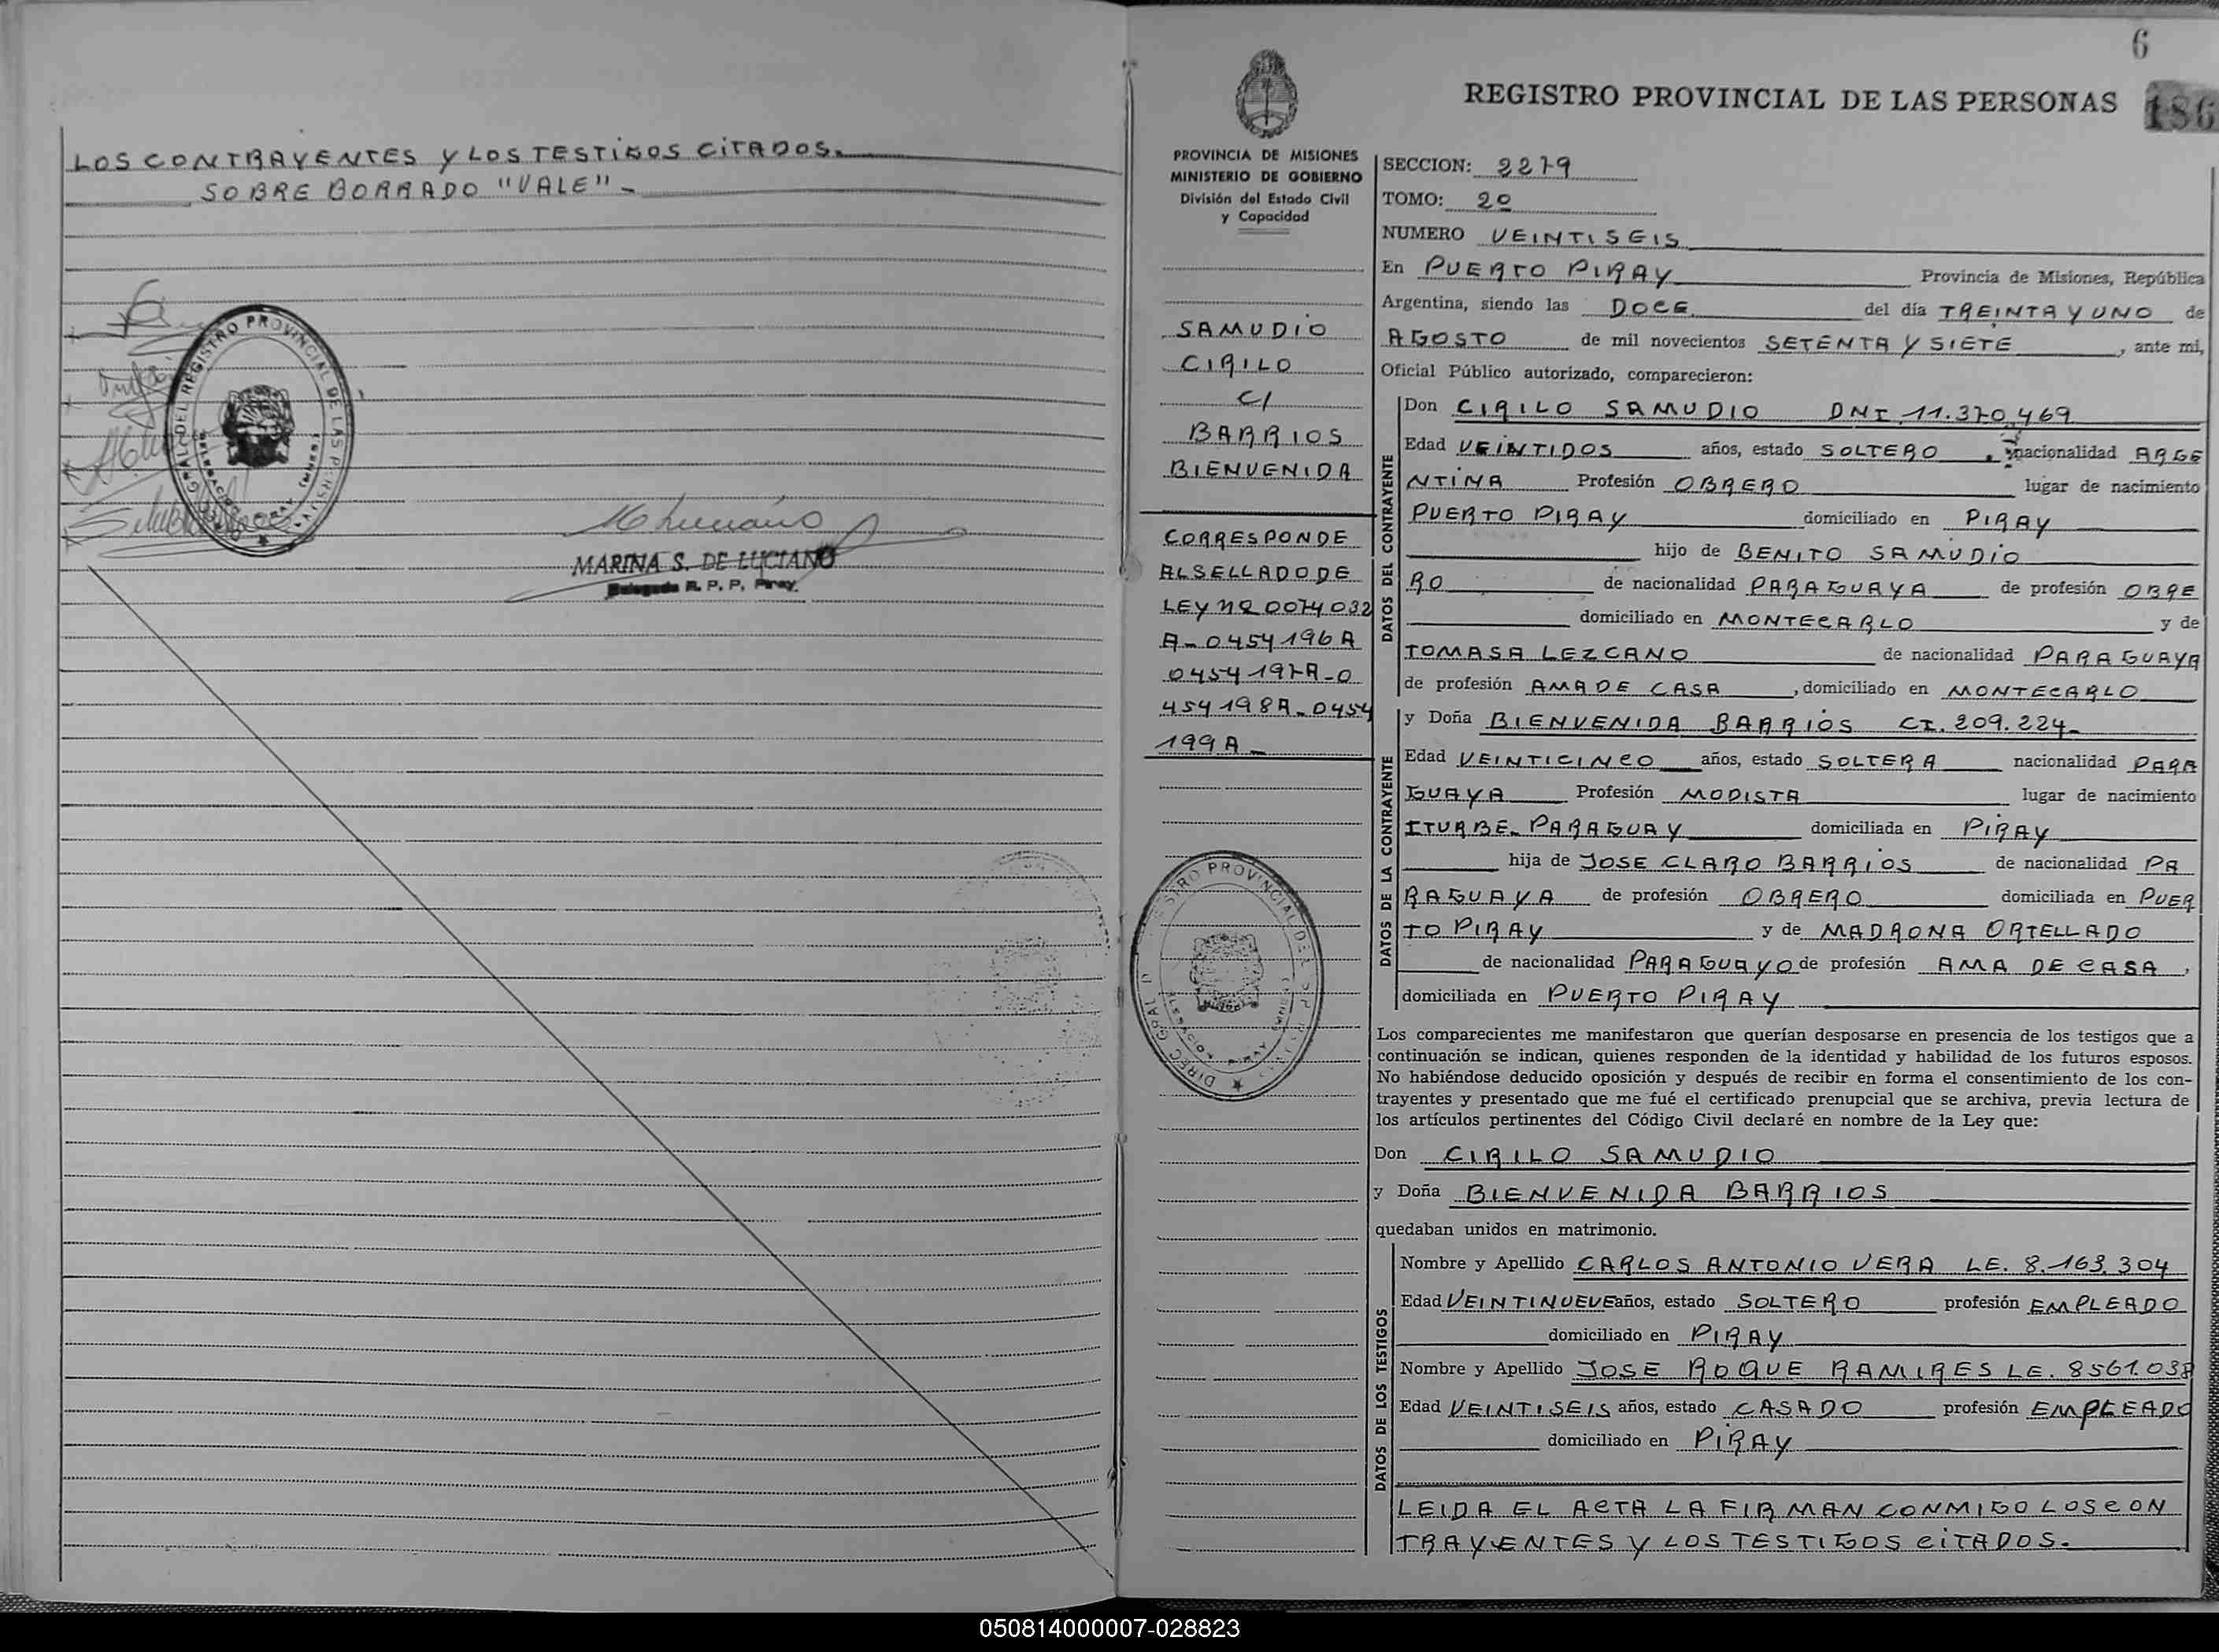 LOS CONTRAYENTES Y LOS TESTIGOS CITADOS.
SOBRE BORRADO "VALE" -
MARINA S. DE LUCIANO
Delegada R. P. P. Piray
6
REGISTRO PROVINCIAL DE LAS PERSONAS
186
PROVINCIA DE MISIONES
MINISTERIO DE GOBIERNO
División del Estado Civil
y Capacidad
SAMUDIO
CIRILO
C/
BARRIOS
BIENVENIDA
CORRESPONDE
AL SELLADO DE
LEY Nº 0074032
A-0454196A
0454197A-0
454198A-0454
199A-
SECCION: 2279
TOMO: 20
NUMERO VEINTISEIS
En PUERTO PIRAY Provincia de Misiones, República
Argentina, siendo las DOCE del día TREINTA Y UNO de
AGOSTO de mil novecientos SETENTA Y SIETE, ante mi,
Oficial Público autorizado, comparecieron:
DATOS DEL CONTRAYENTE
Don CIRILO SAMUDIO DNI 11.370,469
Edad VEINTIDOS años, estado SOLTERO, nacionalidad ARGE
NTINA Profesión OBRERO lugar de nacimiento
PUERTO PIRAY domiciliado en PIRAY
hijo de BENITO SAMUDIO
RO de nacionalidad PARAGUAYA de profesión OBRE
domiciliado en MONTECARLO y de
TOMASA LEZCANO de nacionalidad PARAGUAYA
de profesión AMA DE CASA, domiciliado en MONTECARLO
DATOS DE LA CONTRAYENTE
y Doña BIENVENIDA BARRIOS CI. 209.224-
Edad VEINTICINCO años, estado SOLTERA nacionalidad PARA
GUAYA Profesión MODISTA lugar de nacimiento
ITURBE- PARAGUAY domiciliada en PIRAY
hija de JOSE CLARO BARRIOS de nacionalidad PA
RAGUAYA de profesión OBRERO domiciliada en PUER
TO PIRAY y de MADRONA ORTELLADO
de nacionalidad PARAGUAYO de profesión AMA DE CASA,
domiciliada en PUERTO PIRAY
Los comparecientes me manifestaron que querían desposarse en presencia de los testigos que a
continuación se indican, quienes responden de la identidad y habilidad de los futuros esposos.
No habiéndose deducido oposición y después de recibir en forma el consentimiento de los con-
trayentes y presentado que me fué el certificado prenupcial que se archiva, previa lectura de
los artículos pertinentes del Código Civil declaré en nombre de la Ley que:
Don CIRILO SAMUDIO
y Doña BIENVENIDA BARRIOS
quedaban unidos en matrimonio.
DATOS DE LOS TESTIGOS
Nombre y Apellido CARLOS ANTONIO VERA LE. 8.163.304
Edad VEINTINUEVE años, estado SOLTERO profesión EMPLEADO
domiciliado en PIRAY
Nombre y Apellido JOSE ROQUE RAMIRES LE. 8561.038
Edad VEINTISEIS años, estado CASADO profesión EMPLEADO
domiciliado en PIRAY
LEIDA EL ACTA LA FIRMAN CONMIGO LOS CON
TRAYENTES Y LOS TESTIGOS CITADOS.
050814000007-028823